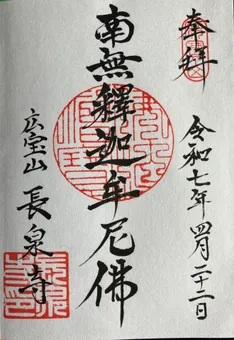 奉拝
令和七年四月二十二日
南無釋迦牟尼佛
宝山
長泉寺